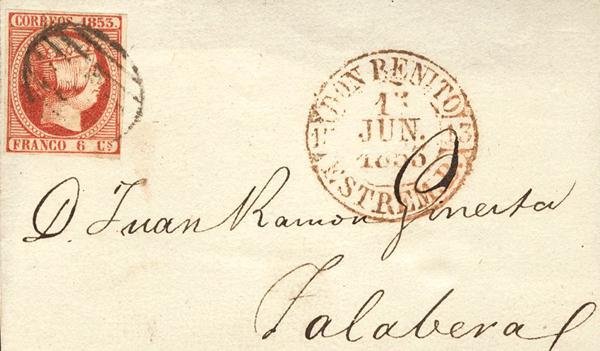 CORREOS 1853.
FRANCO 6 Cs
DON BENITO
JUN.
ESTREMA
D. Juan Ramon Ginesta
Talabera